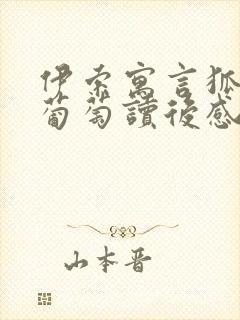 伊索寓言狐
葡萄讀後感
山本晋